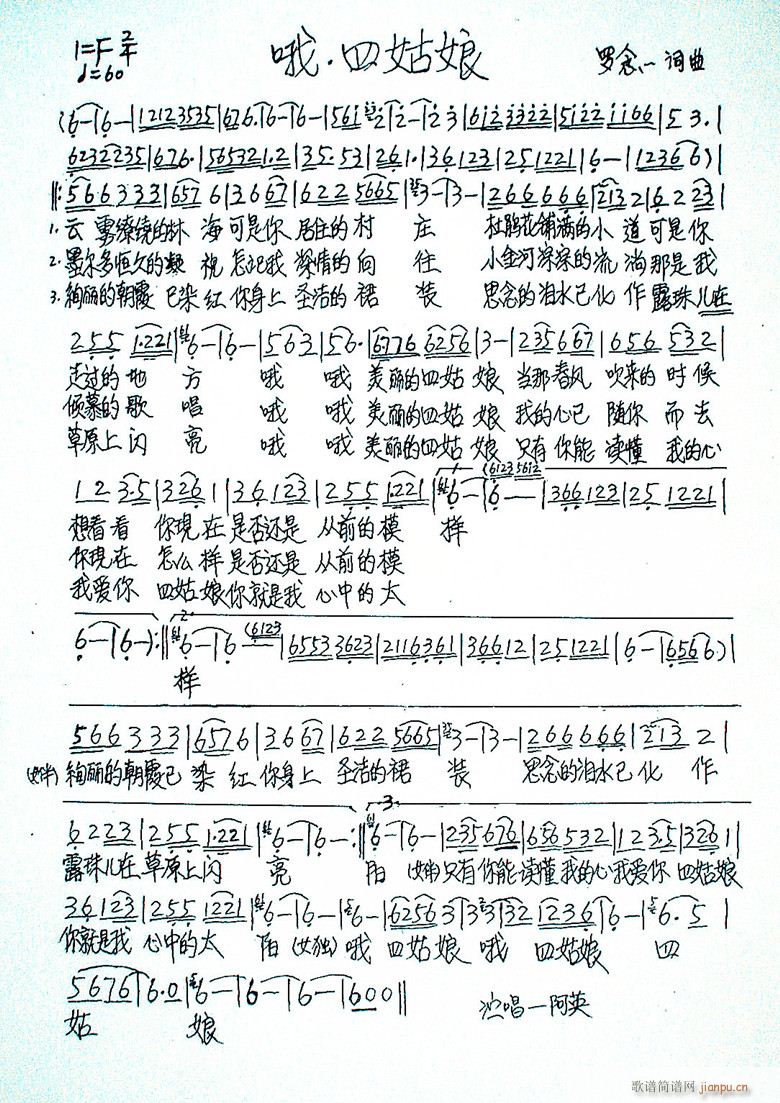 哦·四姑娘
1=F 2/4
♩=60
罗念一 词曲
(6-|6-|1212 3535|676·|6-|6-|561 2|2-|2 3|612 3322|5122 1166|5 3·|
6232235|676·|56532 1·2|35·53|261·|36123|251221|6-|12366)|
‖:566333|6576|3667|622 5665|3-|3-|266666|2132|6223|
1.云雾缭绕的林 海可是你 居住的村 庄 杜鹃花铺满的小 道可是你
2.墨尔多恒久的凝 视怎记我 深情的向 往 小金河深深的流 淌那是我
3.绚丽的朝霞 已染红你身上 圣洁的裙 装 思念的泪水已化 作露珠儿在
255 1·221|6-|6-|563|56·|67766256|3-|235667|656 532|
走过的地 方 哦 哦 美丽的四姑 娘 当那春风 吹来的时候
倾慕的歌 唱 哦 哦 美丽的四姑 娘 我的心已 随你而去
草原上闪 亮 哦 哦 美丽的四姑 娘 只有你能 读懂 我的心
12 3·5|3261|36123|255 1·221|6-|6--|366123|251221|
(6123 5612
想看看 你现在是否还是 从前的模 样
你现在 怎么样是否还是 从前的模
我爱你 四姑娘你就是我 心中的太
6-|6-):‖6-|6 (6123|6553 3623|2116361|36612|251221|6-|6566·)|
样
566333|6576|3667|622 5665|3-|3-|266666|2132|
(女伴)绚丽的朝霞已 染红你身上 圣洁的裙 装 思念的泪水已化 作
6223|255 1·221|6-|6-:‖6-|6-|235676|656532|123·5|3261|
露珠儿在草原上闪 亮 阳 (女伴)只有你能读懂我的心我爱你 四姑娘
36123|255 1221|6-|6-|6-|6256 3|3 32|1236|6-|6·5|
你就是我 心中的太 阳(女独)哦 四姑娘 哦 四姑娘 四
5676|6·0|6-|6-|6-|600‖
姑 娘
演唱—阿英
歌谱简谱网
jianpu.cn